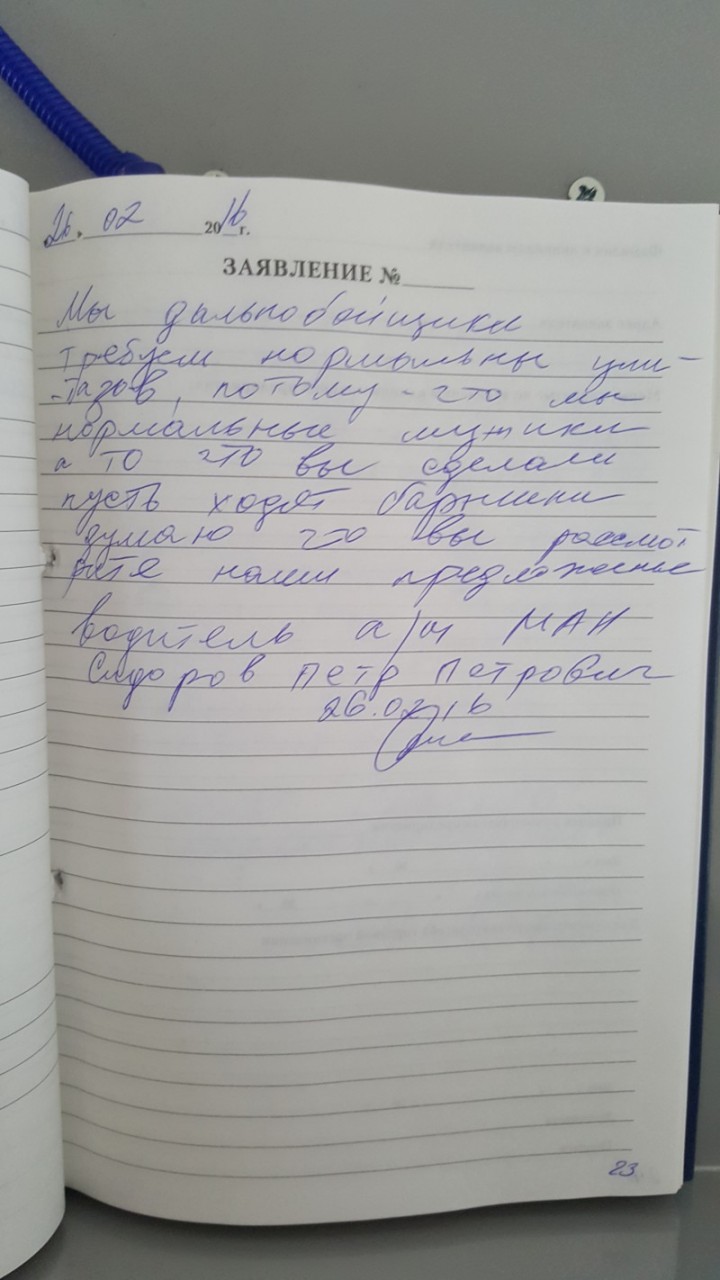 26. 02 2016 г.
ЗАЯВЛЕНИЕ №
Мы дальнобойщики
требуем нормальны уни-
-тазов, потому-что мы
нормальные мужики
а то что вы сделали
пусть ходят барышни
думаю что вы рассмот
рите наши предложение
водитель а/м МАН
Сидоров Петр Петрович
26.02.16
23